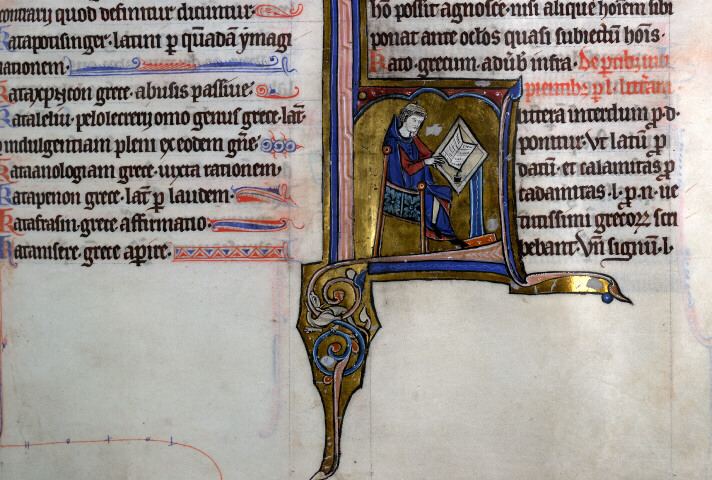 contrarii quod definitur dicuntur
Catapotisinger. latini ꝑ quādam ymagi
nationem.
Kataxpsicon grece. abusis passiue.
Katalehu. pelolecreti omo genus grece. lat̄.
indulgentiam pleni ex eodem gn̄e.
Kataanologiam grece. iuxta rationem.
Katapenon grece. lat̄. ꝑ laudem.
Katafrasin. grece affirmatio.
Katamisere. grece aperire.
hō possit agnosce. nisi aliquē hoīem sibi
ponat ante ocłos quasi subiectū hoīs.
Kato. grecum. aduƀ. infra.
ꝑ l. litterā
littera interdum ꝑ. d.
ponitur. Vt latiū ꝑ
datiū. et calamitas ꝑ
cadamitas. l. ꝑ. n. ue
tutissimi grecoꝝ scri
bebant. Vn̄ signum. l.